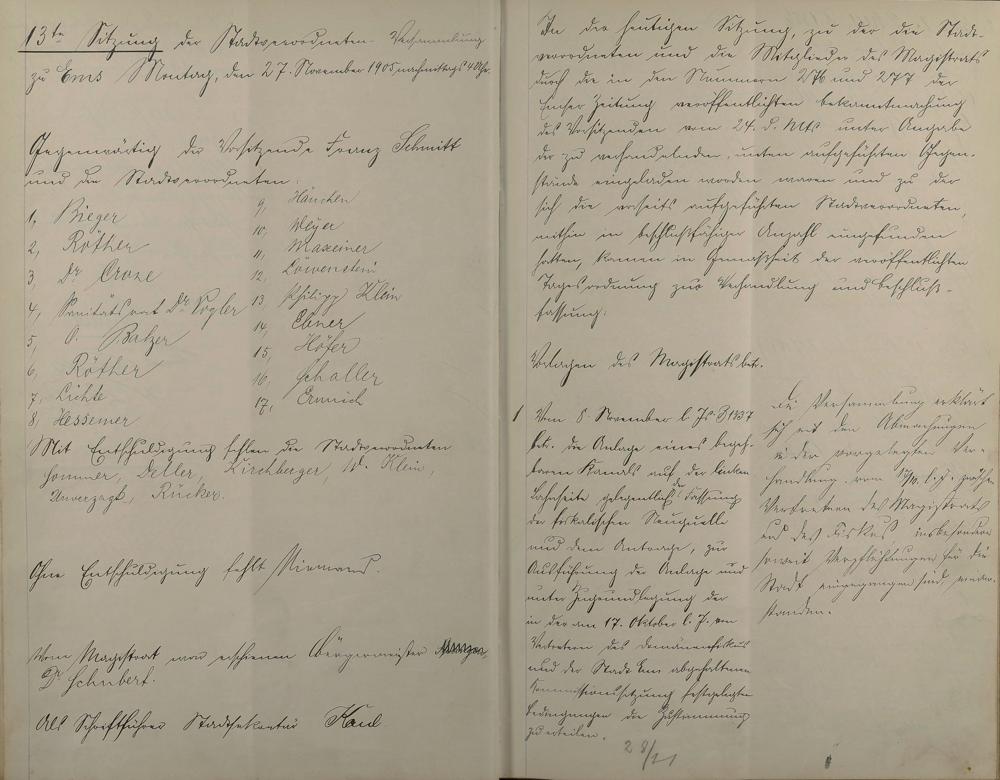 13te Sitzung der Stadtverordneten-Versammlung
zu Ems Montag, den 27. November 1905 nachmittags 4 Uhr.
Gegenwärtig der Vorsitzende Franz Schmitt
und die Stadtverordneten:
1, Bieger
2, Röther
3, Dr. Croze
4, Sanitätsrat Dr. Vogler
5, O. Balzer
6, Röther
7, Lichte
8, Hessemer
9, Hänchen
10, Weyer
11, Maxeiner
12, Löwenstein
13 Philipp Klein
14, Ebner
15, Höfer
16, Schaller
17,
Mit Entschuldigung fehlen die Stadtverordneten
Sommer, Deller, Kirchberger, W. Klein,
Unverzagt, Rücker.
Ohne Entschuldigung fehlt Niemand.
Vom Magistrat war erschienen Bürgermeister
Dr. Schubert.
Als Schriftführer Stadtsekretär Kaul
In der heutigen Sitzung, zu der die Stadt-
verordneten und die Mitglieder des Magistrats
durch die in den Nummern 276 und 277 der
Emser Zeitung veröffentlichten Bekanntmachung
des Vorsitzenden vom 24. d. Mts unter Angabe
der zu verhandelnden, unten aufgeführten Gegen-
stände eingeladen worden waren und zu der
sich die vorseits aufgeführten Stadtverordneten,
mithin in beschlußfähiger Anzahl eingefunden
hatten, kamen in Gemäßheit der veröffentlichten
Tagesordnung zur Verhandlung und Beschluß-
fassung:
Vorlagen des Magistrats bet.
1 Vom 8 November l. Js. B 1137
betr. die Anlage eines begeh-
baren Kanals auf der linken
Lahnseite gelegentlich der Fassung
der fiskalischen Neuquelle
und dem Antrage, zur
Ausführung der Anlage und
unter Zugrundlegung der
in der am 17. Oktober l. J. von
Vertretern des Domänenfiskus
und der Stadt Ems abgehaltenen
Kommissionssitzung festgelegten
Bedingungen die Zustimmung
zu erteilen.
Die Versammlung erklärt
sich mit den Abmachungen
in der vorgelegten Ver-
handlung vom 17/10. l. J. zwischen
Vertretern des Magistrats
und des Fiskus insbesondere
soweit Verpflichtungen für die
Stadt eingegangen sind, einver-
standen.
28/11